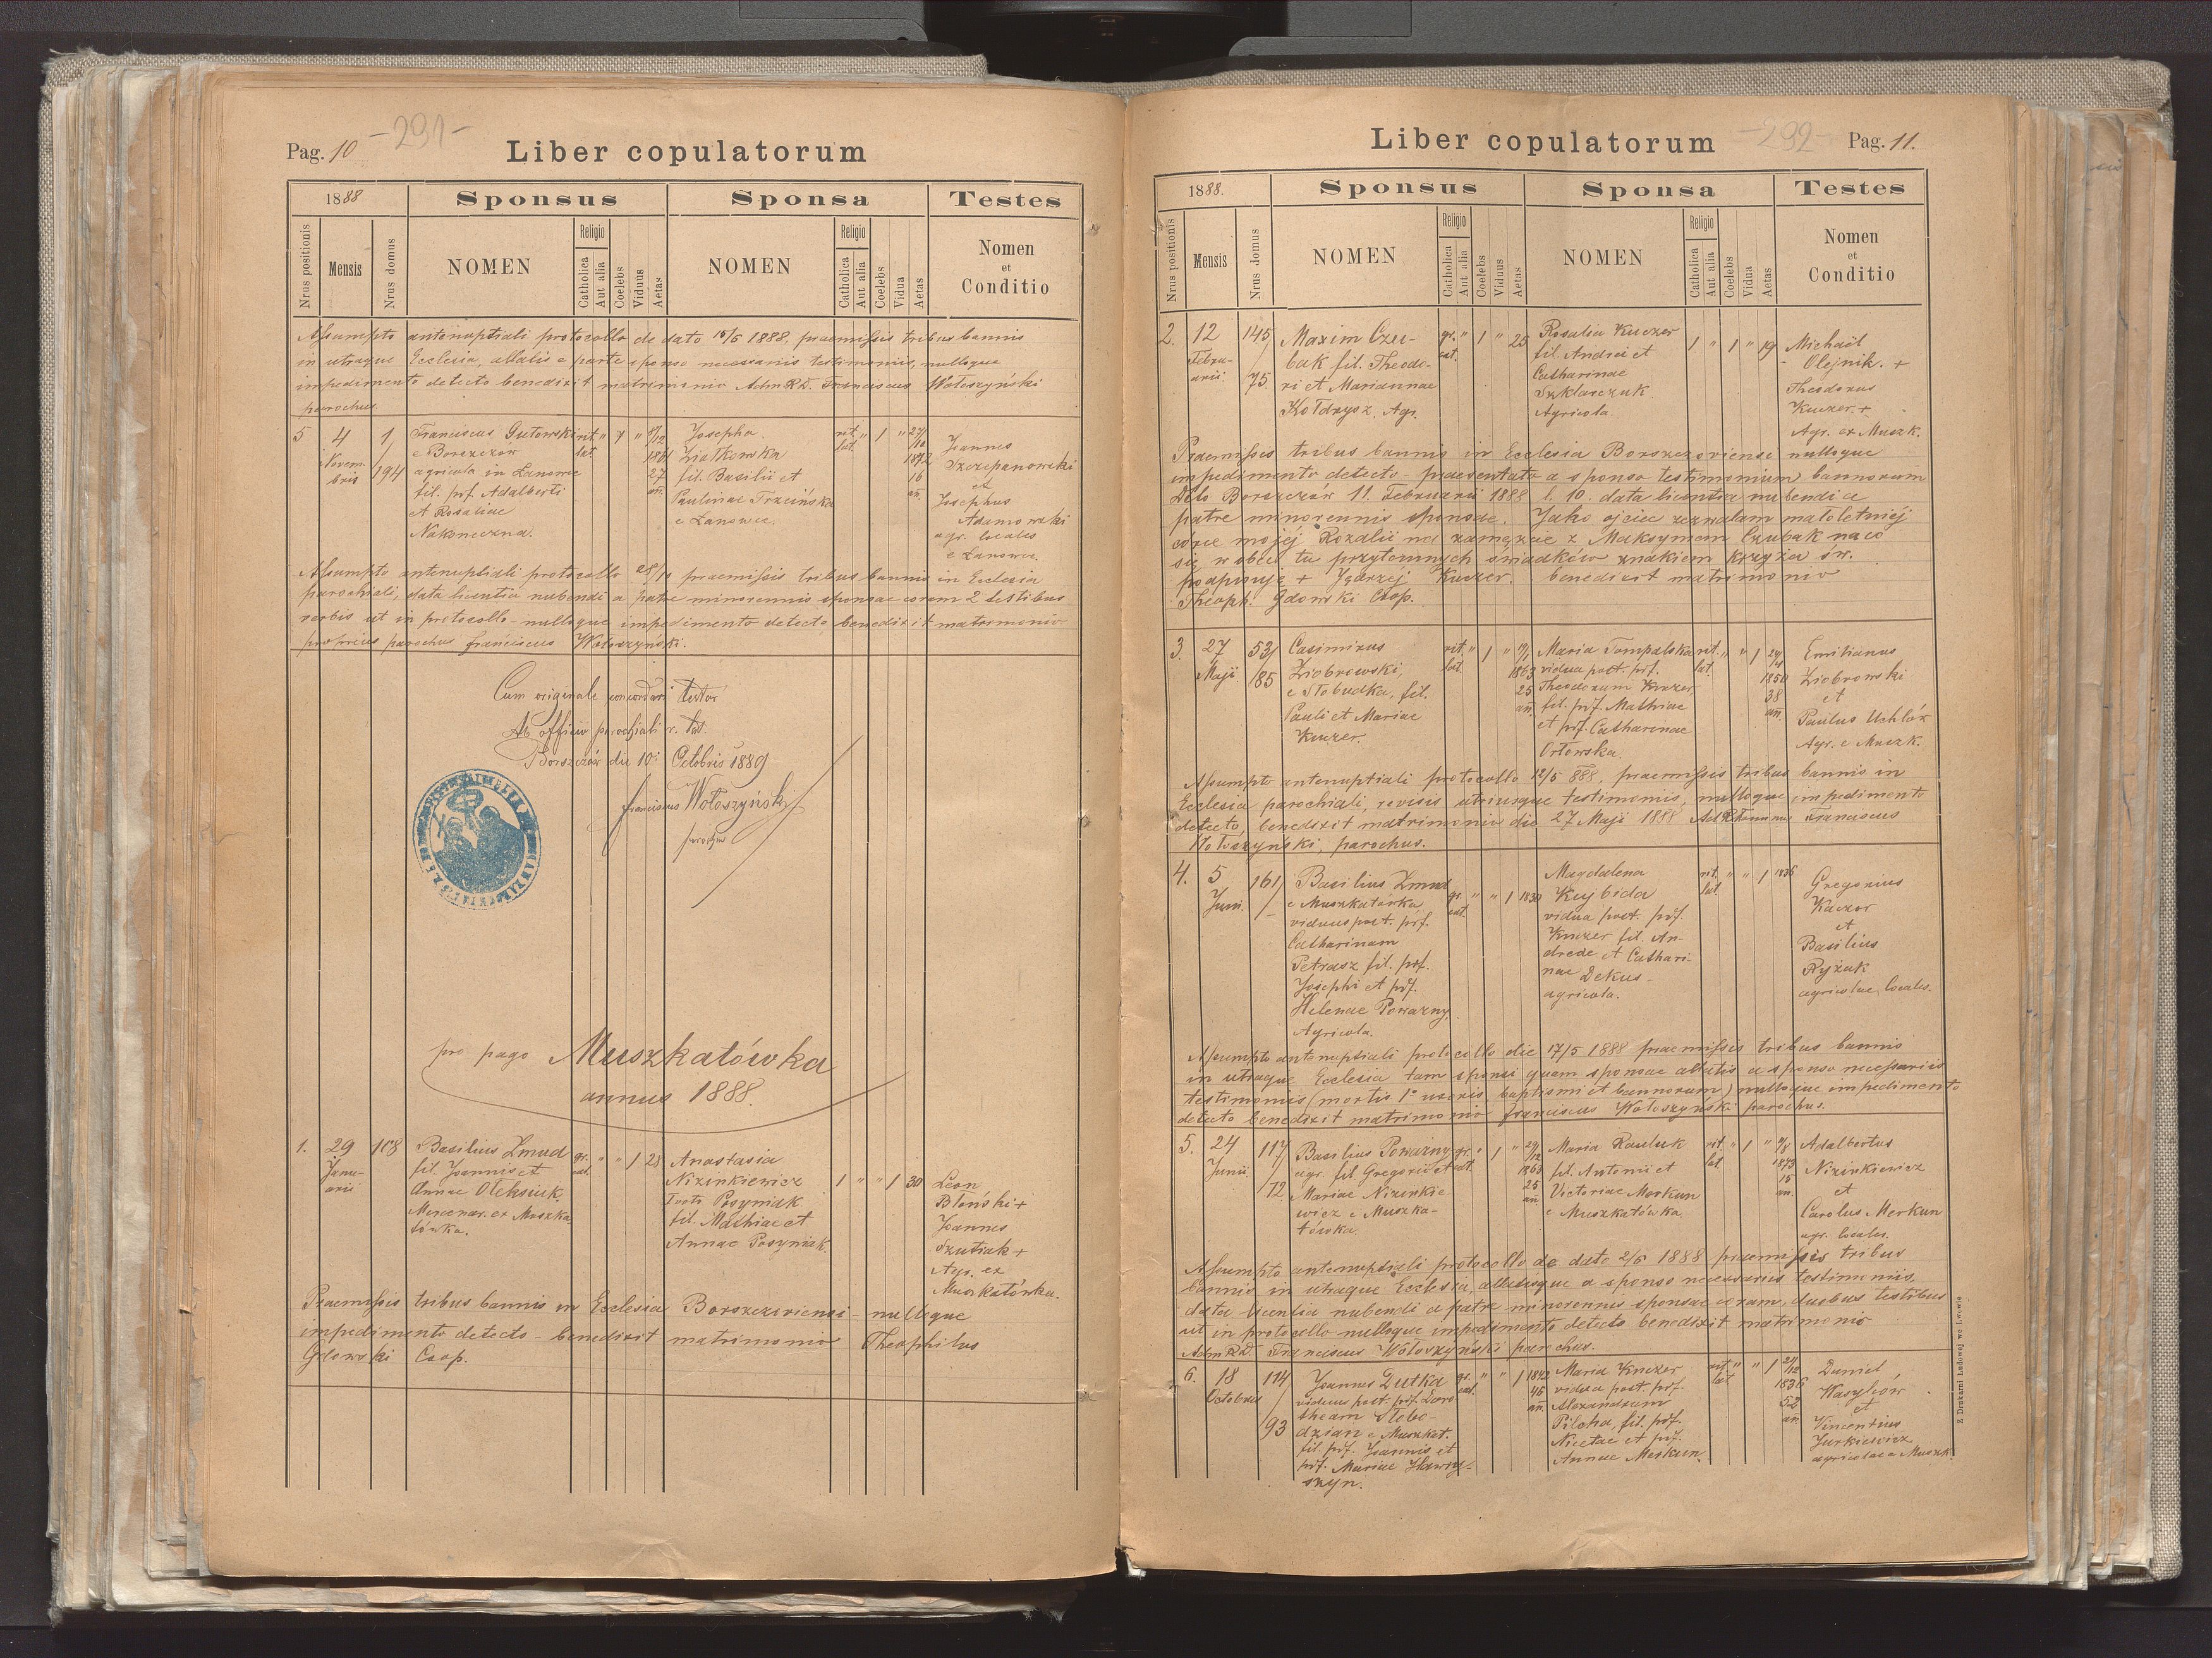 Pag. 10
-291-
Liber copulatorum
1888
Sponsus
Sponsa
Testes
Nrus positionis
Mensis
Nrus domus
NOMEN
Religio
Catholica
Aut alia
Coelebs
Viduus
Aetas
NOMEN
Religio
Catholica
Aut alia
Coelebs
Vidua
Aetas
Nomen
et
Conditio
Assumpto antenuptiali protocollo de dato 15/5 1888, praemissis tribus bannis
in utraque Ecclesia, allatis a parte sponso necessariis testimoniis, nulloque
impedimento detecto benedixit matrimonio Adm R.D. Franciscus Wołoszyński
parochus.
5
4
Novem-
bris
1
/
194
Franciscus Gutowski
e Borszczow
agricola in Lanowce
fil. prf. Adalberti
et Rosaliae
Nakoneczna.
rit.
lat.
"
1861
27
an.
Josepha
Ziolkowska
fil. Basilii et
Paulinae Trzcińska
e Lanowce.
rit.
lat.
"
1
"
27/10
1872
16
an.
Joannes
Szczepanowski
et
Josephus
Adamowski
agr. locales
e Lanowce.
Assumpto antenuptiali protocollo 28/10 praemissis tribus bannis in Ecclesia
parochiali, data licentia nubendi a patre minorennis sponsae coram 2 testibus
verbis ut in protocollo - nulloque impedimento detecto benedixit matrimonio
proprius parochus Franciscus Wołoszyński.
Cum originale concordari testor
Ab officio parochiali r. lat.
Borszczów die 10 Octobris 1889
Franciscus Wołoszyński
parochus
pro pago Muszkatówka
annus 1888.
1.
29
Janu-
arii
108
Basilius Zmud
fil. Joannis et
Annae Oleksiuk,
Mercenar. ex Muszka
tówka.
gr.
cat.
"
"
1
28
Anastasia
Nizinkiewicz
Posyniak
fil. Mathiae et
Annae Posyniak.
1
"
"
1
30
Leon
Błoński +
Joannes
Szutiak +
Agr. ex
Muszkatówka.
Praemissis tribus bannis in Ecclesia Borszczoviensi - nulloque
impedimento detecto - benedixit matrimonio Theophilus
Gdowski Coop.
Liber copulatorum
-292-
Pag. 11.
1888.
Sponsus
Sponsa
Testes
Nrus positionis
Mensis
Nrus domus
NOMEN
Religio
Catholica
Aut alia
Coelebs
Viduus
Aetas
NOMEN
Religio
Catholica
Aut alia
Coelebs
Vidua
Aetas
Nomen
et
Conditio
2.
12
Febru-
arii
145
/
75
Maxim Czu-
bak fil. Theodo-
ri et Mariannae
Kołdrysz. Agr.
gr.
cat.
"
1
"
25
Rosalia Kuczer
fil. Andrei et
Catharinae
Szklarczuk.
Agricola.
1
"
1
"
19
Michael
Olejnik. +
Theodorus
Kuczer. +
Agr. ex Muszk.
Praemissis tribus bannis in Ecclesia Borszczoviensi nulloque
impedimento detecto - praesentato a sponso testimonium bannorum
Dtto Borszczów 11. Februarii 1888 l. 10. data licentia nubendi a
patre minorennis sponsae. Jako ojciec zezwalam małoletniej
córce mojéj Rozalii na zamęzcie z Maksymem Czubak na co
się wobec tu przytomnych świadków znakiem krzyża św.
podpisuję + Jędrzej Kuczer. benedixit matrimonio
Theoph. Gdowski Coop.
3.
27
Maji
53
/
85
Casimirus
Ziobrowski,
e Słobudka, fil.
Pauli et Mariae
Kuczer.
rit.
lat.
"
1
"
1863
25
an.
Maria Tompalska
vidua post prf.
Theodorum Kuczer
fil. prf. Mathiae
et prf. Catharinae
Orłowska.
rit.
lat.
"
"
1
1850
38
an.
Emilianus
Ziobrowski
et
Paulus Uchlór
Agr. e Muszk.
Assumpto antenuptiali protocollo 12/5 888, praemissis tribus bannis in
Ecclesia parochiali, revisis utriusque testimoniis, nulloque impedimento
detecto, benedixit matrimonio die 27 Maji 1888 Franciscus
Wołoszyński, parochus.
4.
5
Junii
161
/
Basilius Zmud
e Muszkatówka
viduus post. prf.
Catharinam
Petrasz fil. prf.
Josephi et prf.
Helenae Powazny,
Agricola.
gr.
cat.
"
"
1
Magdalena
Kujbida
vidua post. prf.
Kuczer fil. An-
dreae et Cathari-
nae Dekus -
agricola.
rit.
lat.
"
"
1
1836
Gregorius
Kaczor
et
Basilius
Ryżak
agricolae locales.
Assumpto antenuptiali protocollo die 17/5 1888 praemissis tribus bannis
in utraque Ecclesia tam sponsi quam sponsae allatis a sponso necessariis
testimoniis (mortis 1ae uxoris, baptismi et bannorum) nulloque impedimento
detecto benedixit matrimonio Franciscus Wołoszyński parochus.
5.
24
Junii
117
/
72
Basilius Powazny
agr. fil Gregorii et
Mariae Nizinkie
wicz e Muszka-
tówka.
gr.
cat
"
1
"
29/12
1863
25
an
Maria Rauluk
fil. Antonii et
Victoriae Merkun
e Muszkatówka.
rit.
lat.
"
1
"
1873
15
an.
Adalbertus
Nizinkiewicz
et
Carolus Merkun
agr. locales.
Assumpto antenuptiali protocollo de dato 2/6 1888 praemissis tribus
bannis in utraque Ecclesia, allatisque a sponso necessariis testimoniis,
data licentia nubendi a patre minorennis sponsae coram, duobus testibus
ut in protocollo nulloque impedimento detecto benedixit matrimonio
Adm R.D. Franciscus Wołoszyński parochus.
6.
18
Octobris
114
/
93
Joannes Dutka
viduus post. prf. Doro
theam Słobo-
dzian e Muszkat.
fil. prf. Joannis et
prf. Mariae Hawry-
szyn.
gr.
cat.
"
"
1
1842
46
an.
Maria Kuczer
vidua post. prf.
Alexandrum
Pilcha, fil. prf.
Nicetae et prf.
Annae Merkun.
rit.
lat.
"
"
1
1836
52
an
Daniel
Wasylków
et
Vincentius
Jurkiewicz
agricolae e Muszk.
Z Drukarni Ludowej we Lwowie